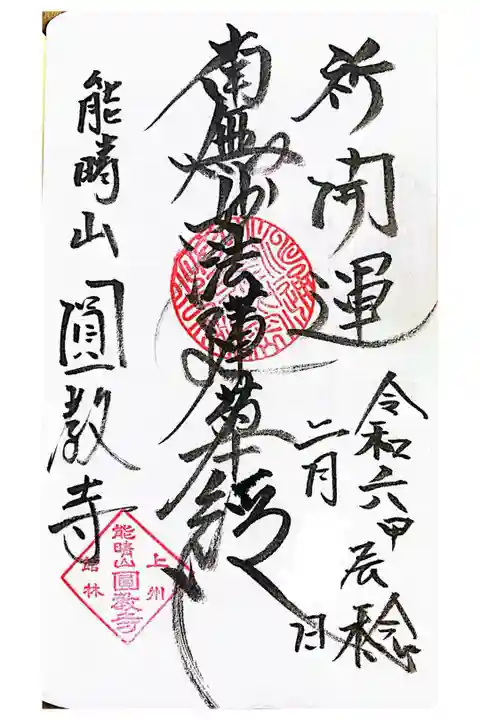 祈開運
令和六甲辰稔
二月 日
南無妙法蓮華経
能晴山 圓教寺
上州
能晴山
圓教寺
館林